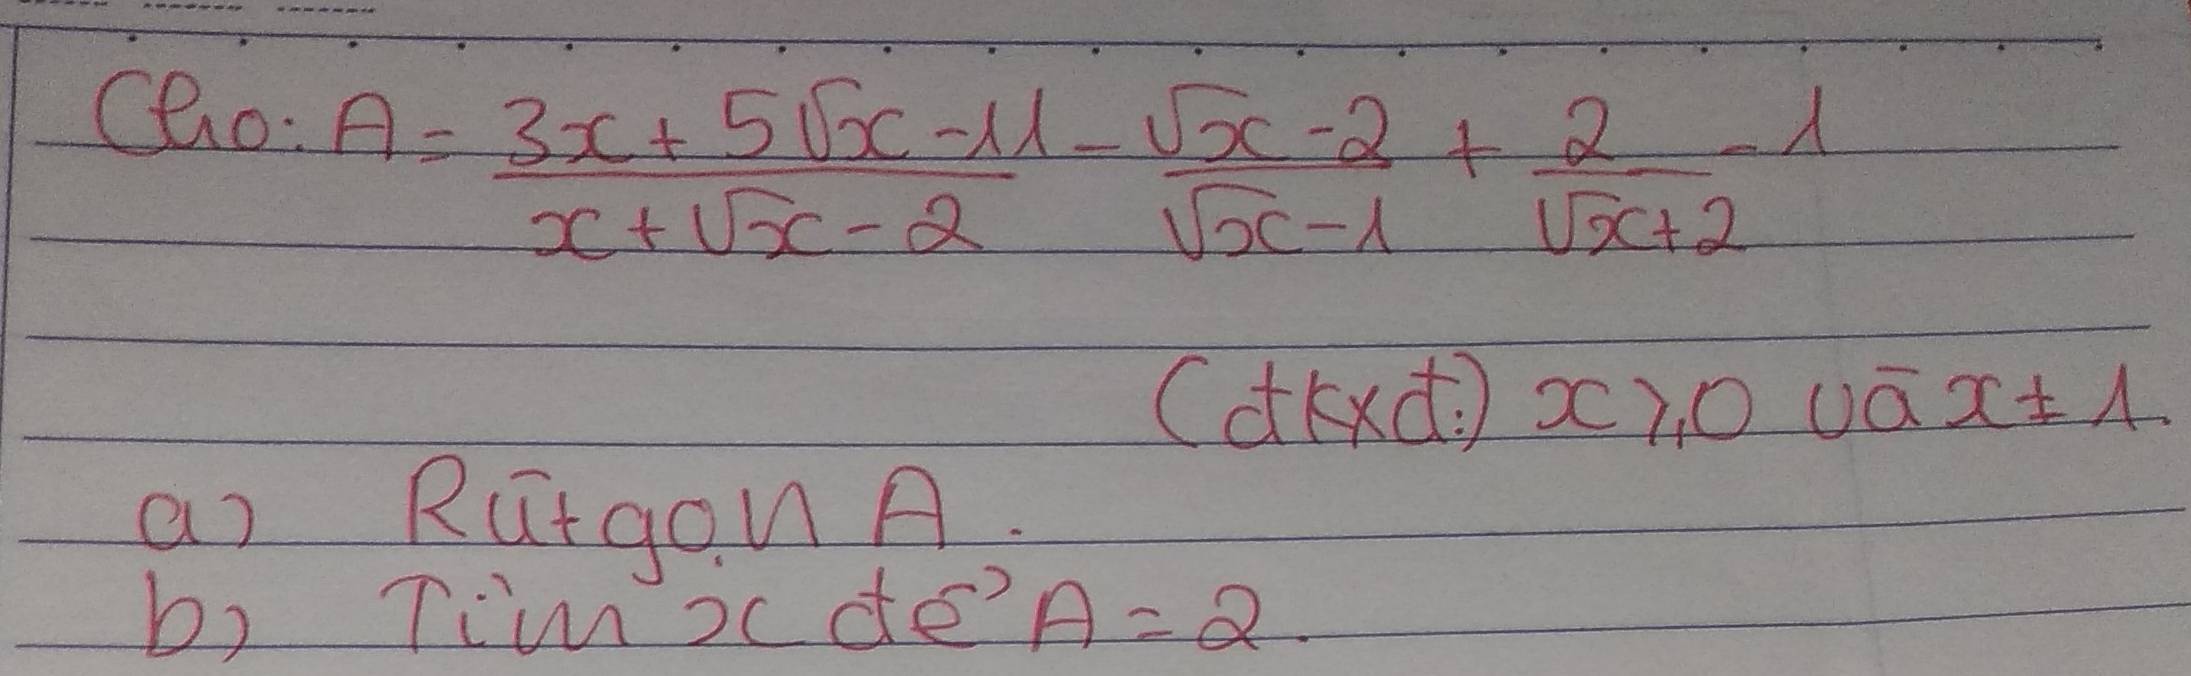 Cho: A = \frac{3x + 5\sqrt{x} - 11}{x + \sqrt{x} - 2} - \frac{\sqrt{x} - 2}{\sqrt{x} - 1} + \frac{2}{\sqrt{x} + 2} - 1
(đkxđ:) x ≥ 0 và x ≠ 1.
a) Rút gọn A.
b) Tìm x để A = 2.